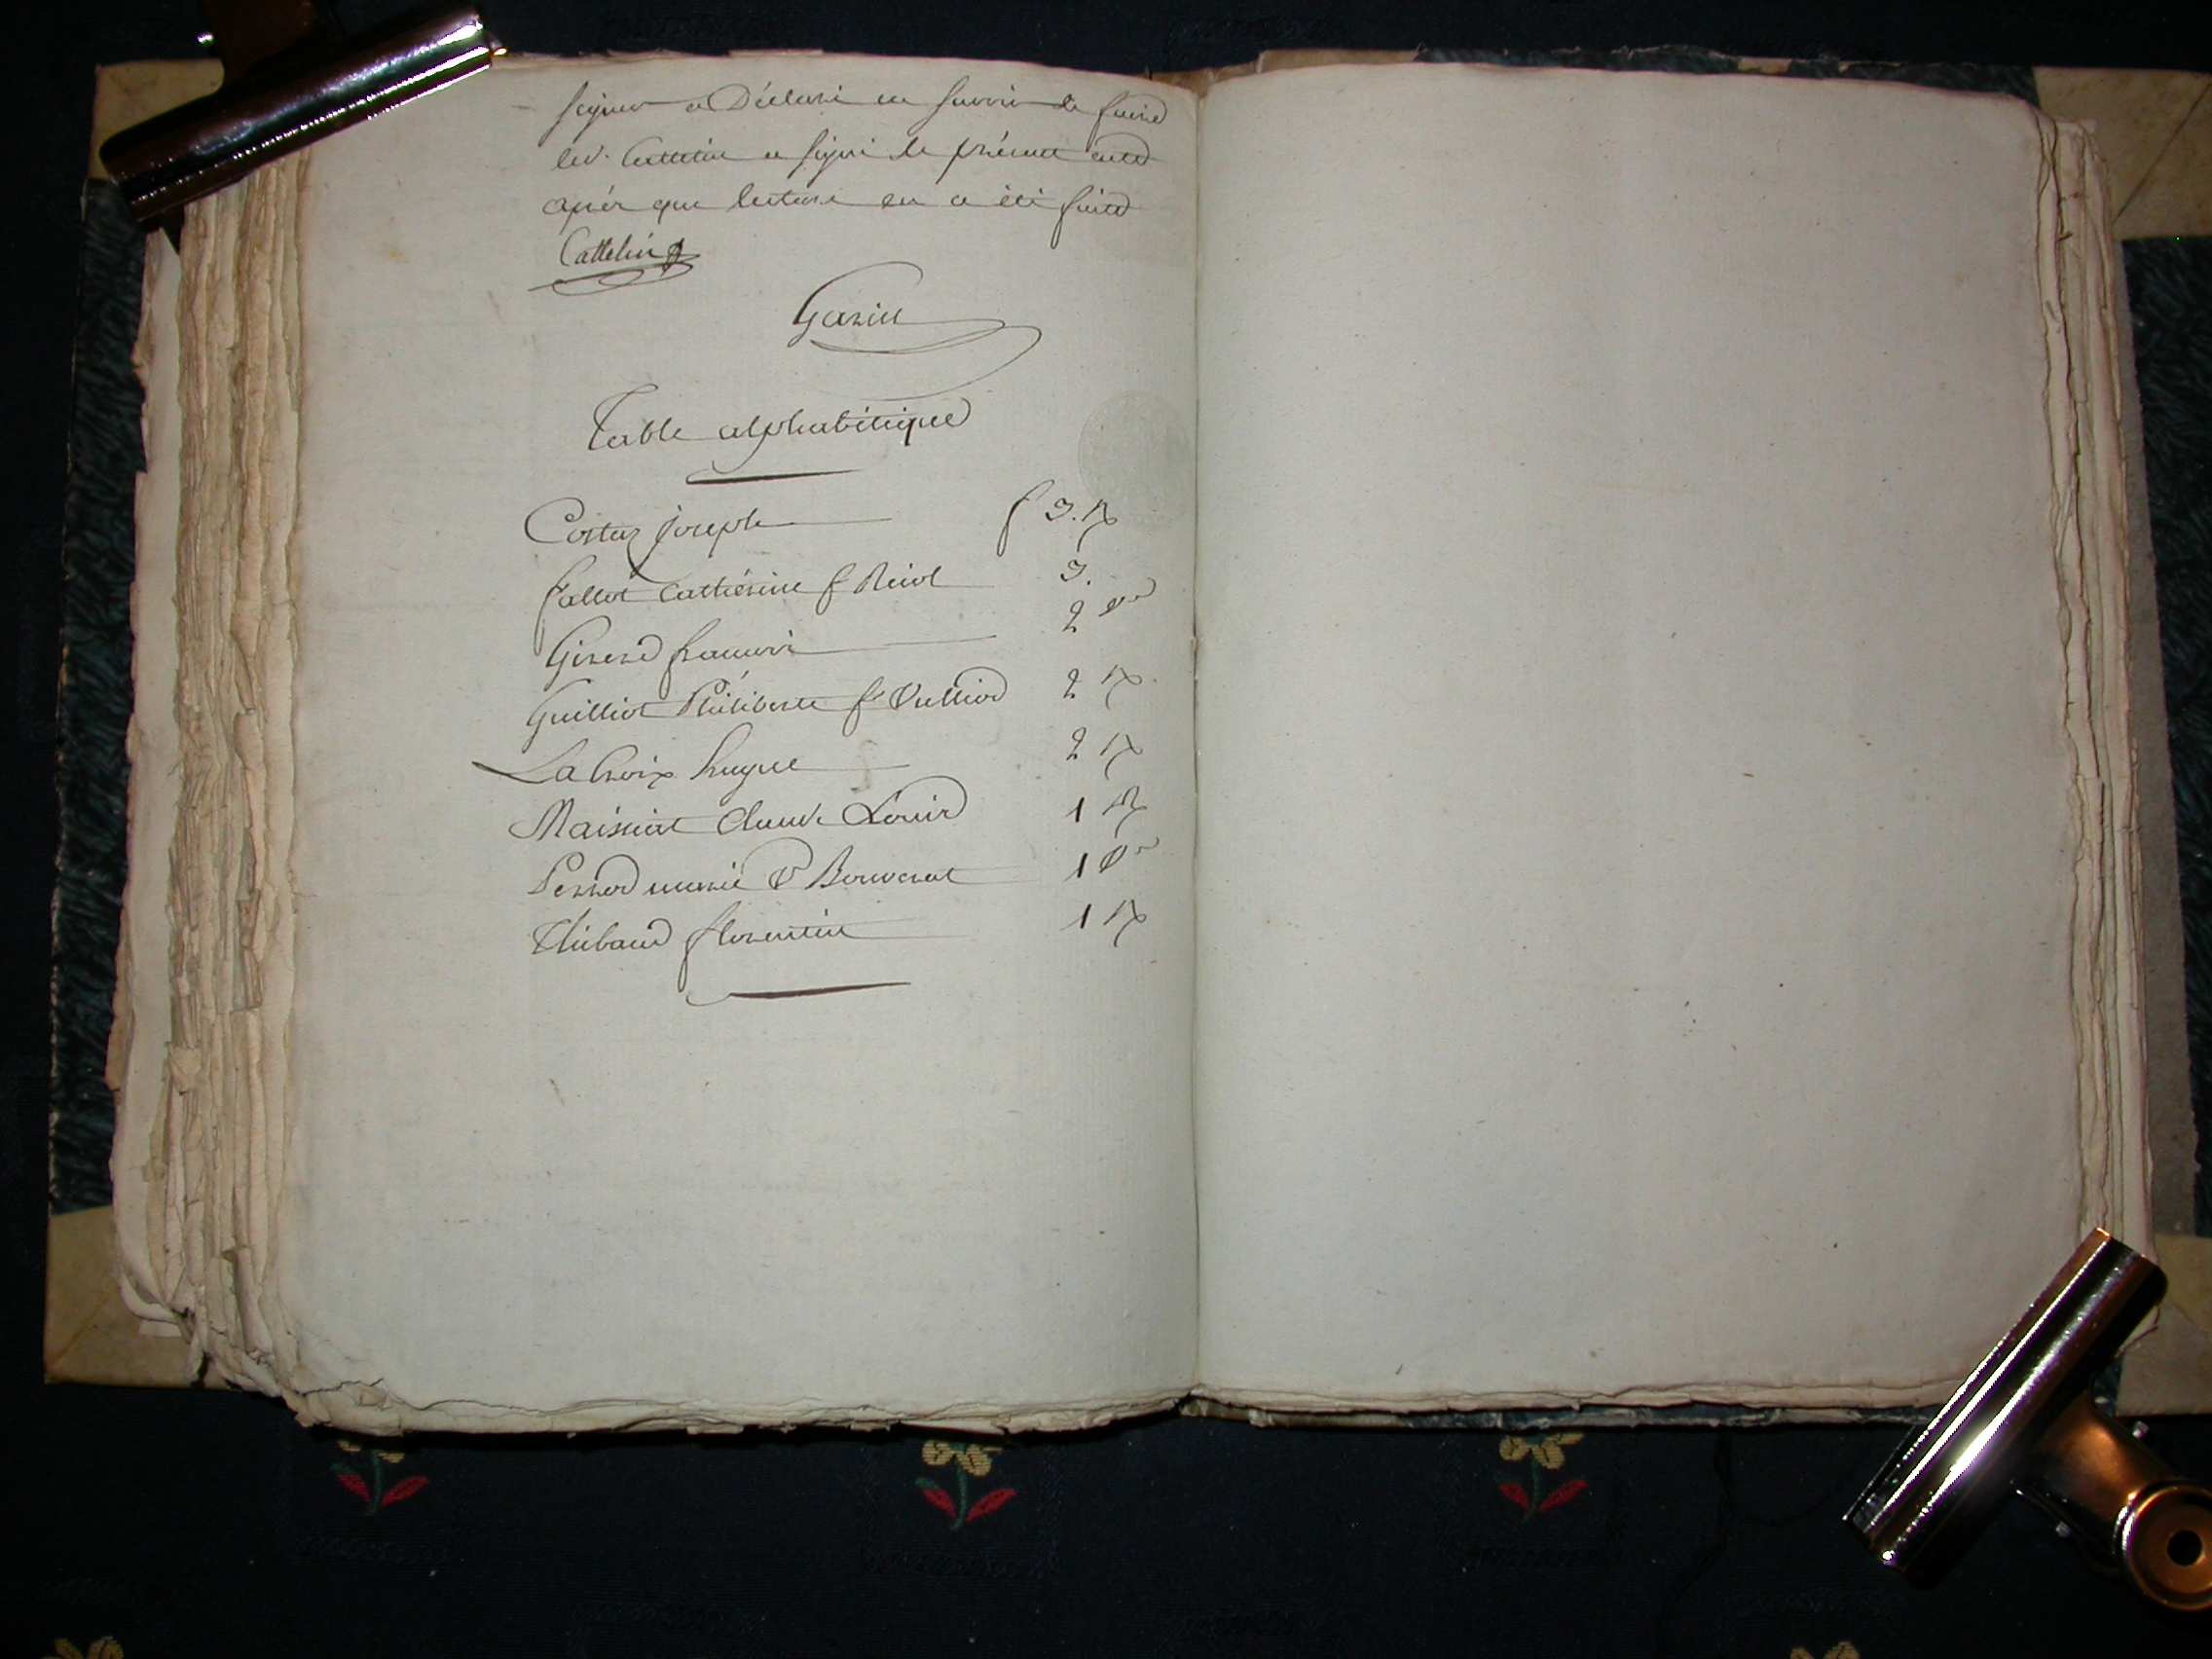 signer a Déclaré ne savoir le faire
led. Cattelin a signé le présent acte
après que lecture en a été faite
Cattelin
Garin
Table alphabétique
Costaz joseph f 3. Rº
Fallot Cathérine f Reiol 3.
Girerd francois 2 Vº
Guilliot Philiberte fe Vulliod 2 Rº
La Croix hugue 2 Rº
Maissiat Claude Louis 1 Rº
Perrod marie Ve Bouverat 1 Vº
Thibaud florentin 1 Rº